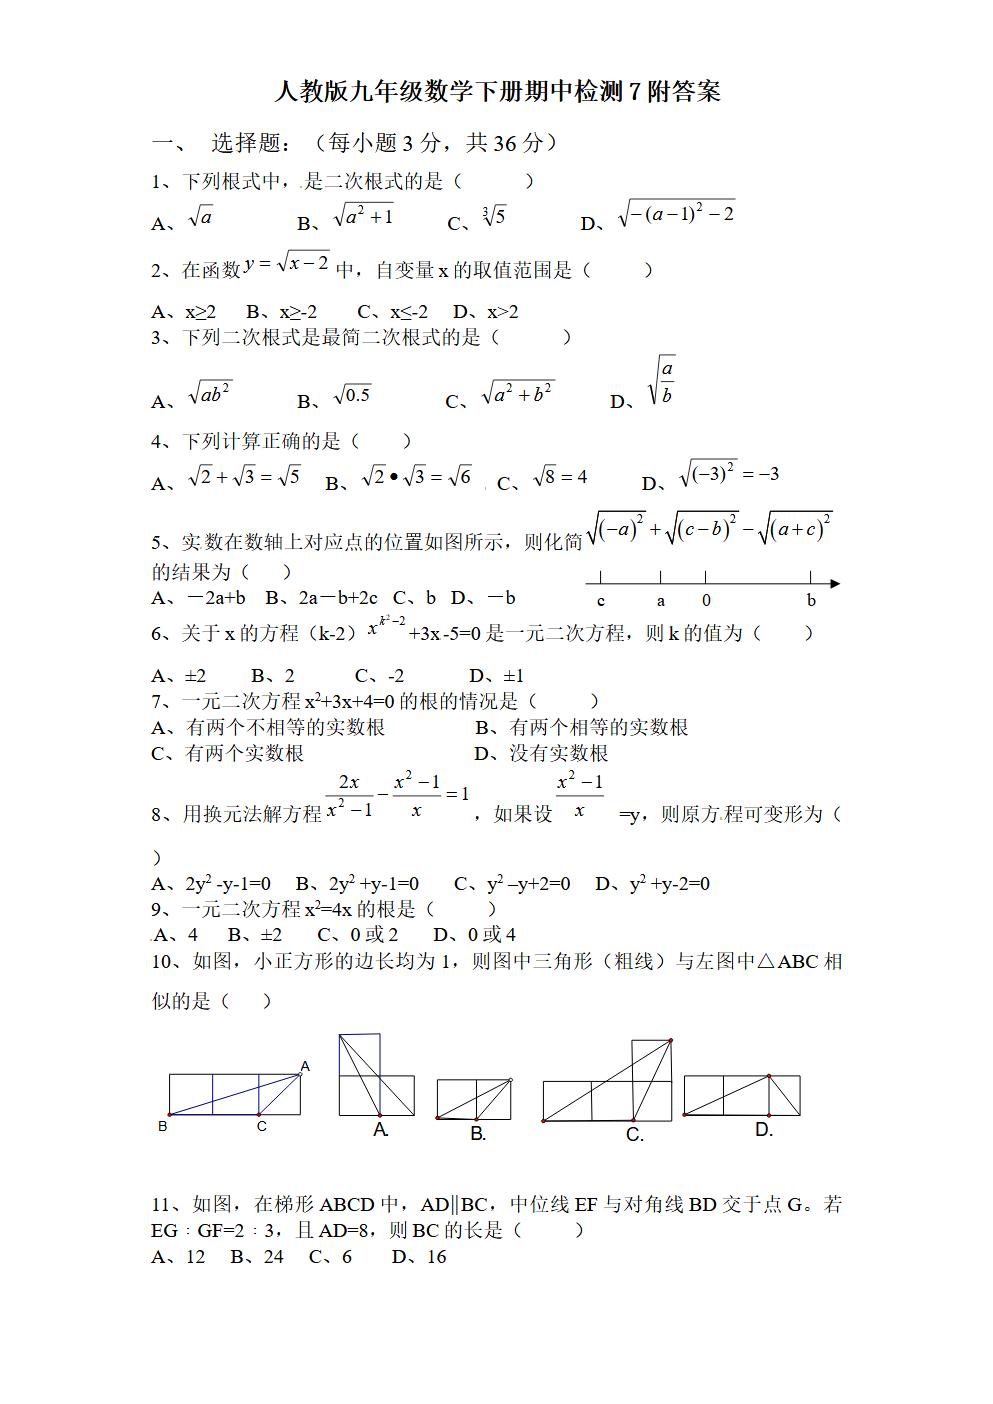 人教版九年级数学下册期中检测7附答案
一、 选择题：（每小题3分，共36分）
1、下列根式中，是二次根式的是（ ）
A、√a B、√(a²+1) C、∛5 D、√(-(a-1)²-2)
2、在函数y=√(x-2) 中，自变量x的取值范围是（ ）
A、x≥2 B、x≥-2 C、x≤-2 D、x>2
3、下列二次根式是最简二次根式的是（ ）
A、√(ab²) B、√0.5 C、√(a²+b²) D、√(a/b)
4、下列计算正确的是（ ）
A、√2+√3=√5 B、√2•√3=√6 C、√8=4 D、√((-3)²)=-3
5、实数在数轴上对应点的位置如图所示，则化简√((-a)²)+√((c-b)²)-√((a+c)²)
的结果为（ ）
A、－2a+b B、2a－b+2c C、b D、－b
c a 0 b
6、关于x的方程（k-2）x^(k²-2)+3x-5=0是一元二次方程，则k的值为（ ）
A、±2 B、2 C、-2 D、±1
7、一元二次方程x²+3x+4=0的根的情况是（ ）
A、有两个不相等的实数根 B、有两个相等的实数根
C、有两个实数根 D、没有实数根
8、用换元法解方程2x/(x²-1)-(x²-1)/x=1，如果设(x²-1)/x =y，则原方程可变形为（
）
A、2y² -y-1=0 B、2y² +y-1=0 C、y² –y+2=0 D、y² +y-2=0
9、一元二次方程x²=4x的根是（ ）
A、4 B、±2 C、0或2 D、0或4
10、如图，小正方形的边长均为1，则图中三角形（粗线）与左图中△ABC相
似的是（ ）
A
B C A. B. C. D.
11、如图，在梯形ABCD中，AD∥BC，中位线EF与对角线BD交于点G。若
EG﹕GF=2﹕3，且AD=8，则BC的长是（ ）
A、12 B、24 C、6 D、16